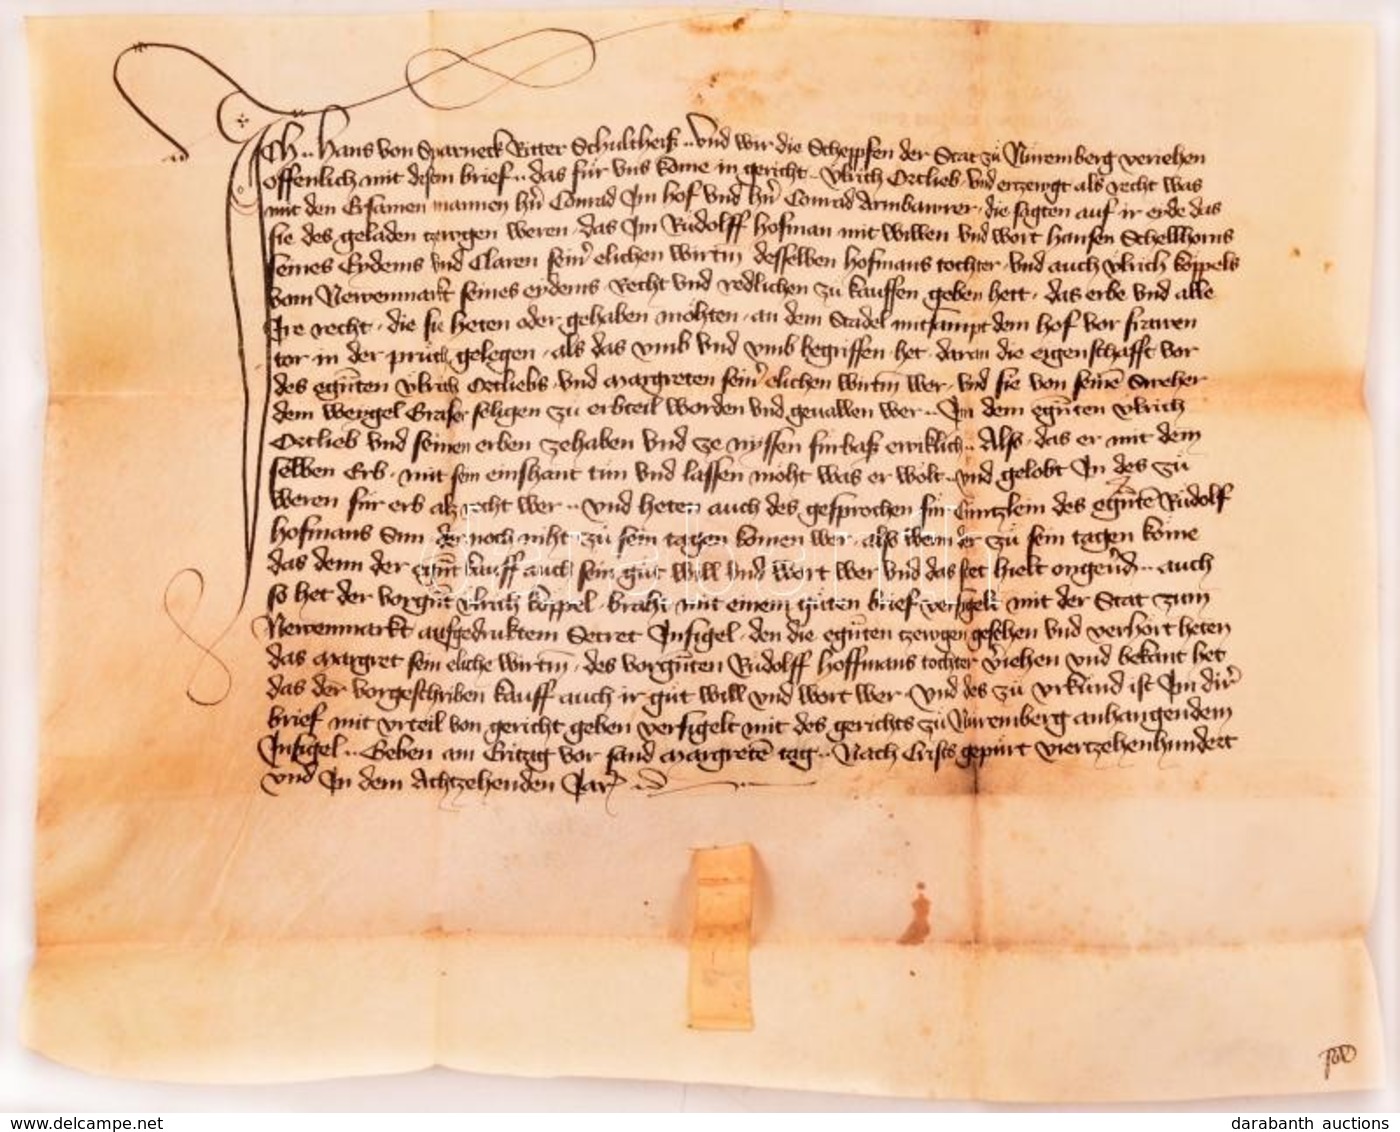 Ich .. Hans von Sparneck Ritter Schultheiß .. Vnd wir die Schepffen der Stat zu Nuremberg veriehen
offenlich mit disem brief .. das für vns kome in gericht .. Vlrich Ortlieb vnd erzewgt als recht was
mit den Ersamen mannen hern Conrad Im hof vnd hern Conrad Armbawrer, die sagten auf ir eyde das
sie des geladen zewgen weren, das Im Rudolff Hofman mit willen vnd wort Hansen Schellhorns
seines Eydems vnd Claren seiner elichen wirtin desselben Hofmans tochter, vnd auch Vlrich Köppels
vom Newenmarkt seines eydems, Recht vnd redlichen zu kauffen geben hett, das erbe vnd alle
Ire recht, die sie heten oder gehaben möhten, an dem Stadel mitsampt dem hof vor frawen
tor in der pruch gelegen, als das vmb vnd vmb begriffen het daran die eigenschafft vor
des egnten Vlrich Ortliebs, vnd Margreten seiner elichen wirtin wer, vnd sie von seinē Sweher
dem Weygel Graser seligen zu erbteil worden vnd geuallen wer .. Im dem egnten Vlrich
Ortlieb vnd seinen erben zehaben vnd ze nyssen fürbaß ewiklich .. Also, das er mit dem
selben Erb, mit sein einshant tun vnd lassen moht was er wölt, vnd gelobt In des zu
weren für erb alz recht wer .. vnd heten auch des gesprochen für Cuntzlein des egnte Rudolf
Hofmans Sun der noch niht zu sein tagen komen wer, alß wenn er zu sein tagen kome
das denn der egnt kauff auch sein gut will vnd wort wer vnd das stet hielt ongeuerd .. auch
so het der vorgnt Vlrich Köppel, braht mit einem guten brief versigelt mit der Stat zum
Newenmarkt aufgedruktem Secret Insigel, den die egnten zewgen gesehen vnd verhört heten
das Margret sein eliche wirtin, des vorgnten Rudolff Hoffmans tochter veriehen vnd bekant het
das der vorgeschriben kauff auch ir gut will vnd wort wer, Vnd des zu vrkund ist Im dir
brief mit vrteil von gericht geben versigelt mit des gerichts zu Nuremberg anhangendem
Insigel .. Geben am Eritzig vor sand Margretē tag .. Nach Crists gepürt viertzehenhundert
vnd In dem Achtzehenden Jar
darabanth
www.delcampe.net
darabanth auctions